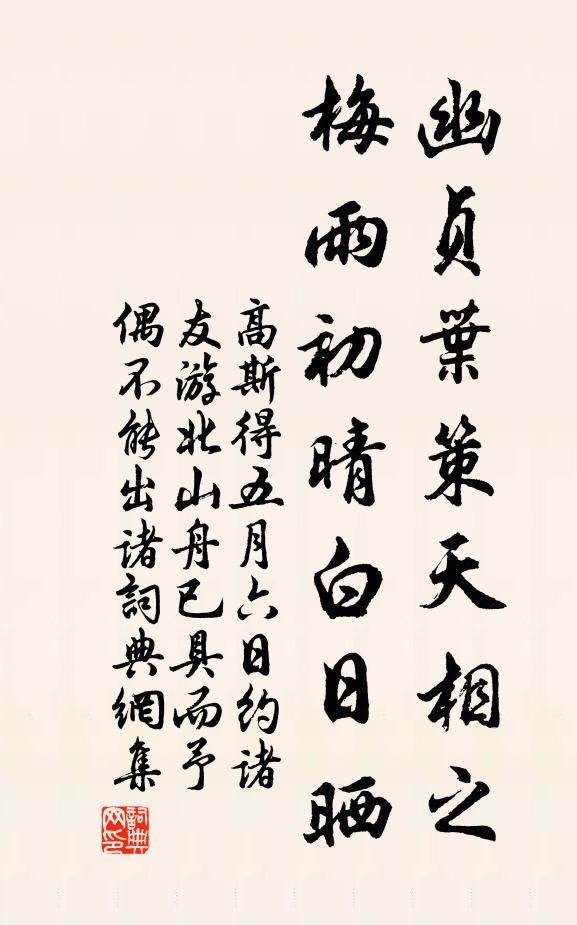 幽貞葉策天相之
梅雨初晴白日晒
高斯得五月六日約諸
友游北山舟已具而予
偶不能出諸詞典網集
詞典
网印